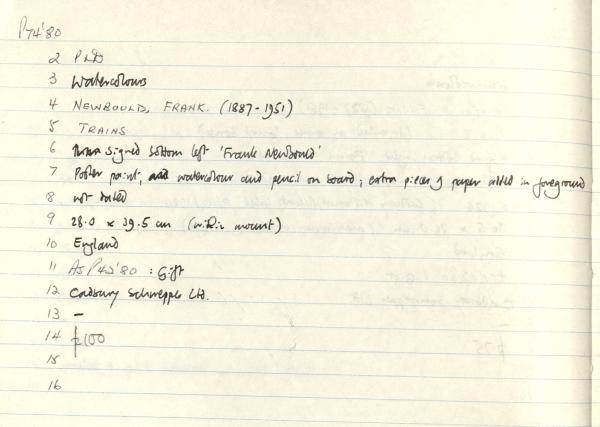 P74'80
2 P&D
3 Watercolours
4 NEWBOULD, FRANK. (1887-1951)
5 TRAINS
6 signed bottom left 'Frank Newbould'
7 Poster paint, watercolour and pencil on board; extra pieces of paper added in foreground
8 not dated
9 28.0 x 39.5 cm (within mount)
10 England
11 As P42'80 : Gift
12 Cadbury Schweppes Ltd.
13 –
14 £100
15
16